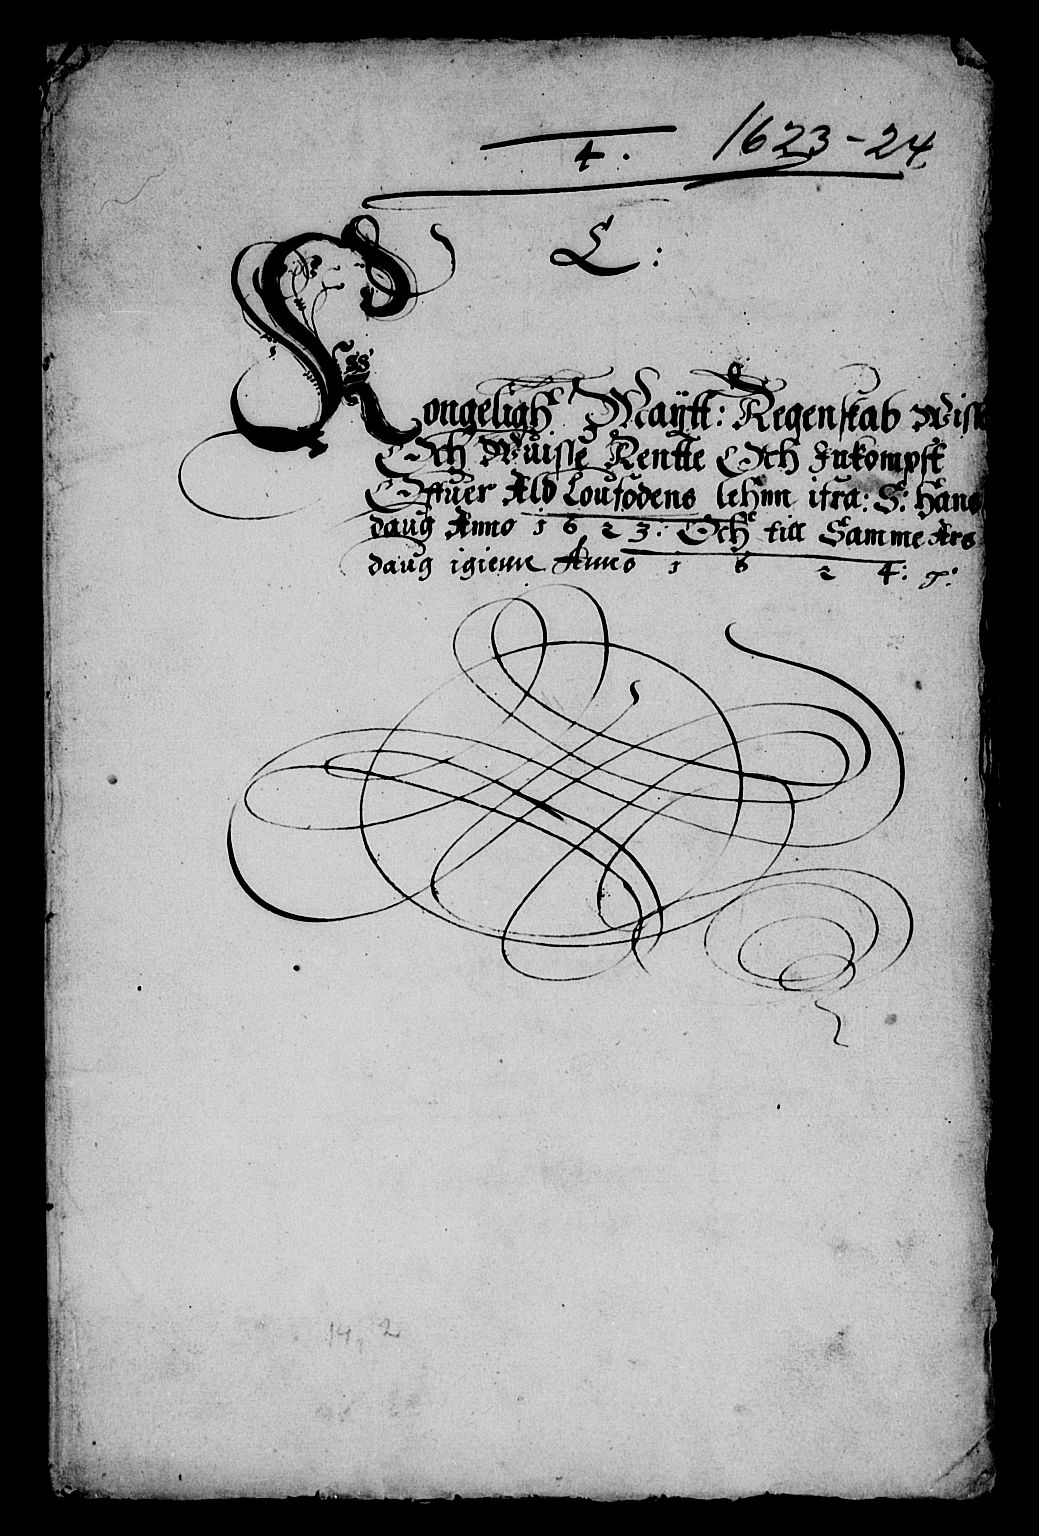 4. 1623-24
L:
Kongeligh Maÿtt: Regenskab Wisse
Och Wuisse Rentte Och Inkompst
Offuer Ald Loufodens lehnn ifra: S: Hans
daug Anno 1623: Och till Samme Ars
daug igienn Anno 1624:
14, 2